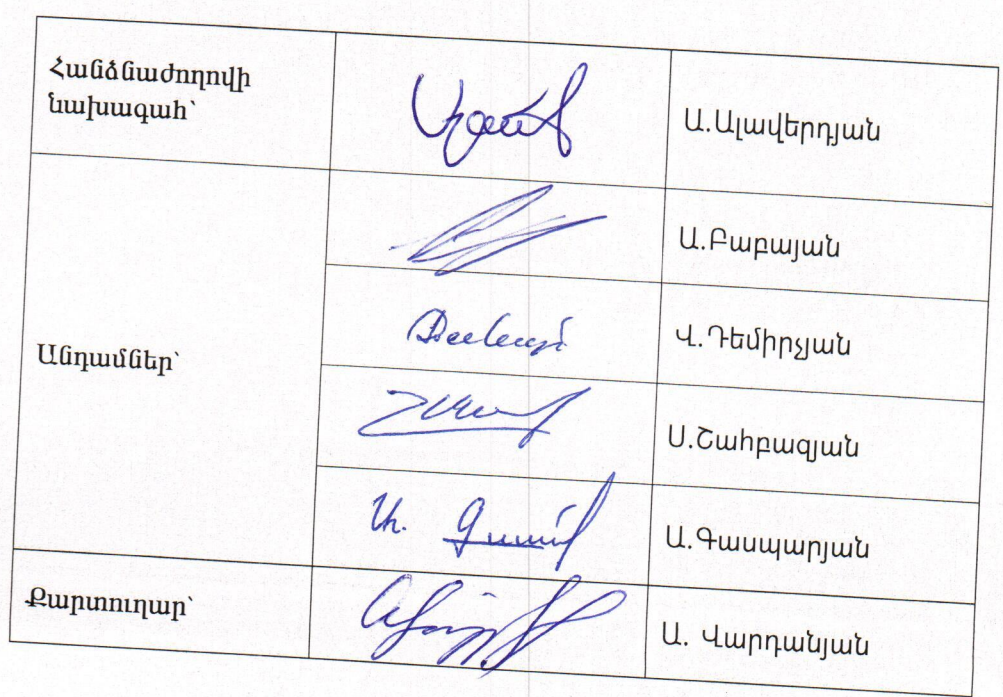 Հանձնաժողովի
նախագահ՝
Ա.Ալավերդյան
Ա.Բաբայան
Անդամներ՝
Վ.Դեմիրչյան
Ս.Շահբազյան
Ա.Գասպարյան
Քարտուղար՝
Ա. Վարդանյան